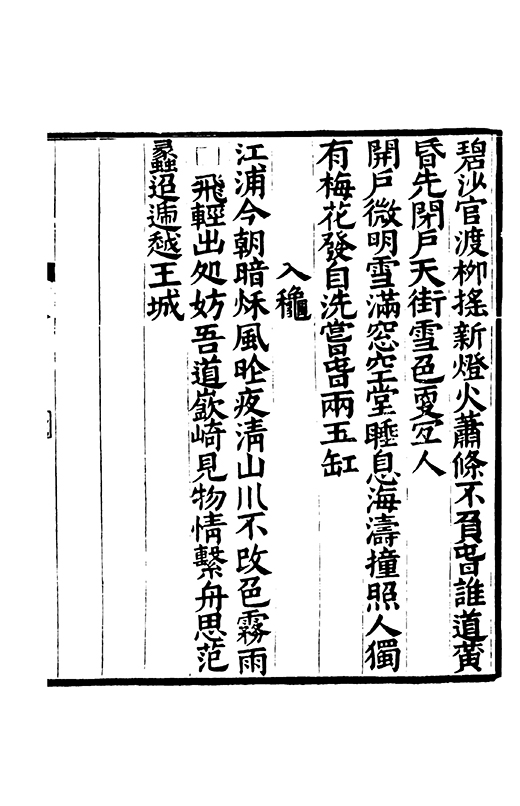 碧沙官渡柳搖新燈火蕭條不負㫺誰道黃
昏先閉戶天街雪色更宜人
開戶微明雪滿窓空堂睡息海濤撞照人獨
有梅花發自洗嘗㫺兩玉缸
入龝
江浦今朝暗烁風昨夜淸山川不改色霧雨
□飛輕出処妨吾道嶔崎見物情繫舟思范
蠡迢遞越王城